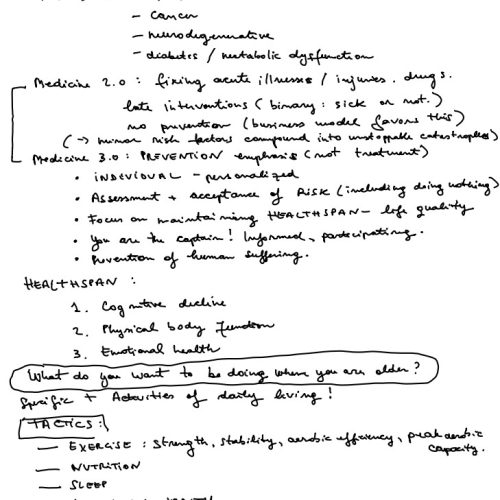 - Cancer
- neurodegenerative
- diabetes / metabolic dysfunction
Medicine 2.0 : fixing acute illnesses / injuries. drugs.
late interventions (binary: sick or not.)
no prevention (business model favors this)
(→ minor risk factors compound into unstoppable catastrophes)
Medicine 3.0 : PREVENTION emphasis (not treatment)
• INDIVIDUAL - personalized
• Assessment + acceptance of RISK (including doing nothing)
• Focus on maintaining HEALTHSPAN - life quality
• You are the captain! Informed, participating.
• Prevention of human suffering.
HEALTHSPAN :
1. Cognitive decline
2. Physical body function
3. Emotional health
What do you want to be doing when you are older?
Specific + Activities of daily living!
TACTICS:
— EXERCISE : strength, stability, aerobic efficiency, peak aerobic capacity.
— NUTRITION
— SLEEP